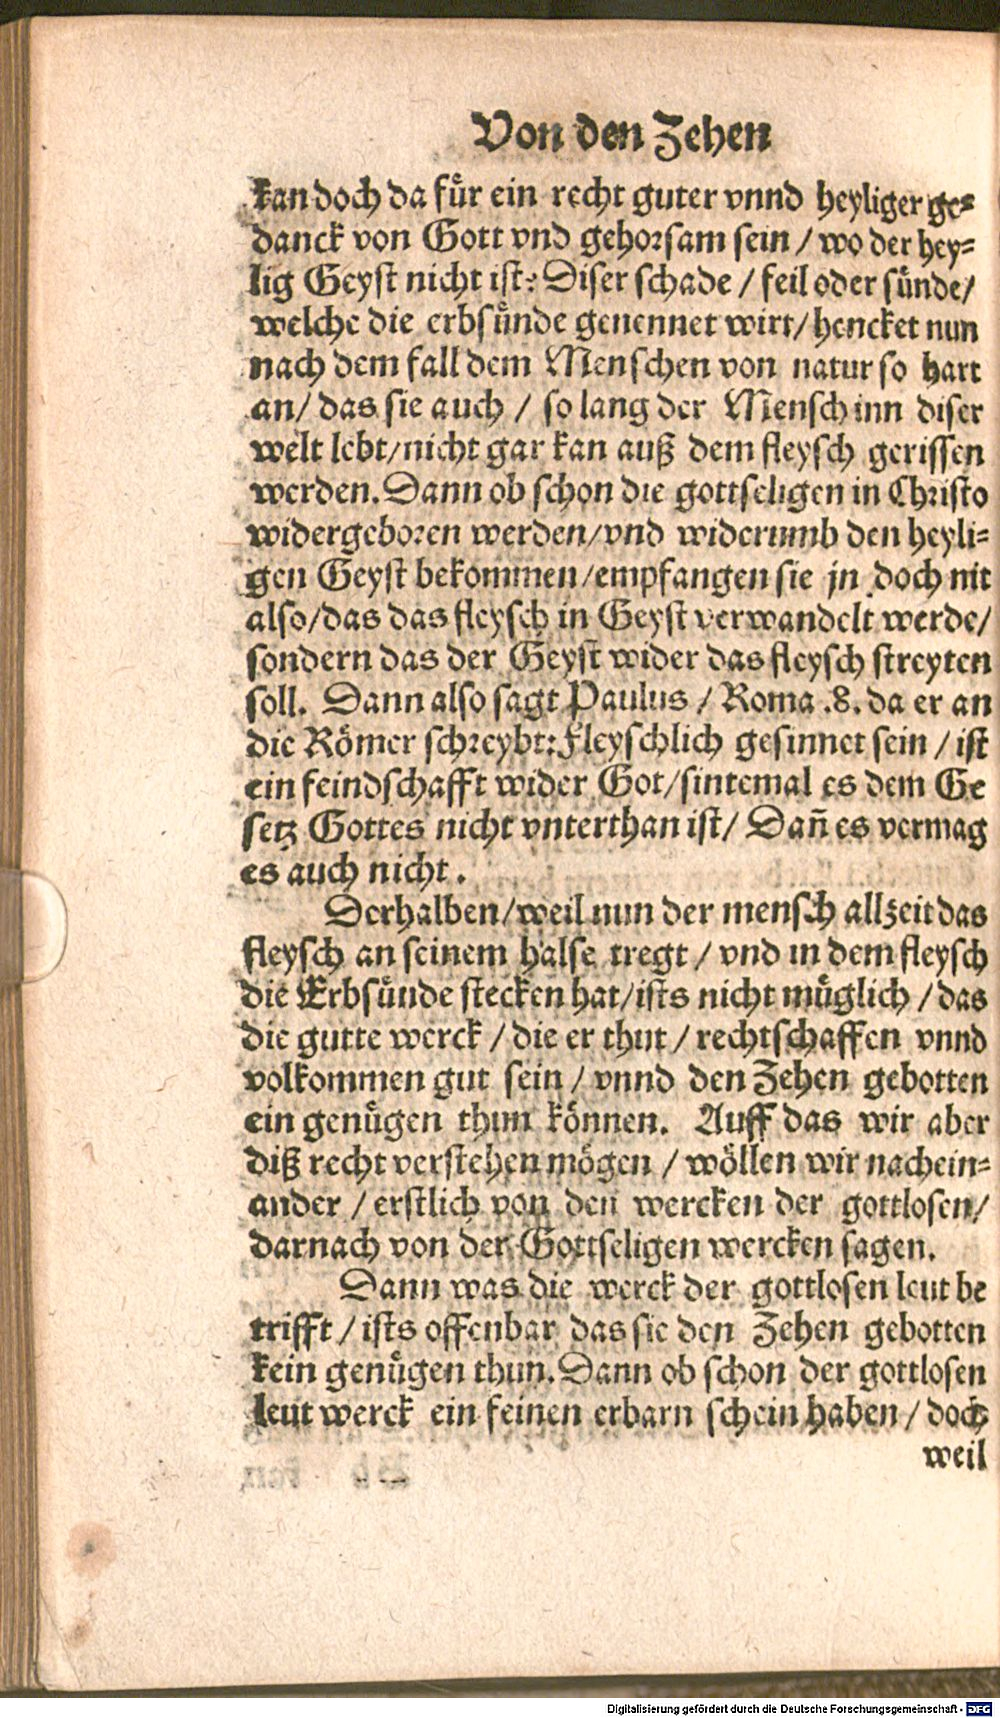 Von den Zehen
kan doch da fuͤr ein recht guter vnnd heyliger ge⸗
danck von Gott vnd gehorsam sein / wo der hey⸗
lig Geyst nicht ist: Diser schade / feil oder suͤnde/
welche die erbsuͤnde genennet wirt/ hencket nun
nach dem fall dem Menschen von natur so hart
an/ das sie auch / so lang der Mensch inn diser
welt lebt/nicht gar kan auß dem fleysch gerissen
werden. Dann ob schon die gottseligen in Christo
widergeboren werden/vnd widerumb den heyli⸗
gen Geyst bekommen/empfangen sie jn doch nit
also/das das fleysch in Geyst verwandelt werde/
sondern das der Geyst wider das fleysch streyten
soll. Dann also sagt Paulus / Roma .8. da er an
die Roͤmer schreybt: Fleyschlich gesinnet sein / ist
ein feindschafft wider Got/sintemal es dem Ge
setz Gottes nicht vnterthan ist/ Dañ es vermag
es auch nicht.
Derhalben/weil nun der mensch allzeit das
fleysch an seinem halse tregt / vnd in dem fleysch
die Erbsuͤnde stecken hat/ists nicht muͤglich / das
die gutte werck / die er thut / rechtschaffen vnnd
volkommen gut sein / vnnd den Zehen gebotten
ein genuͤgen thun koͤnnen. Auff das wir aber
diß recht verstehen moͤgen / woͤllen wir nachein⸗
ander / erstlich von den wercken der gottlosen/
darnach von der Gottseligen wercken sagen.
Dann was die werck der gottlosen leut be
trifft / ists offenbar das sie den Zehen gebotten
kein genuͤgen thun. Dann ob schon der gottlosen
leut werck ein feinen erbarn schein haben / doch
weil
Digitalisierung gefördert durch die Deutsche Forschungsgemeinschaft - DFG